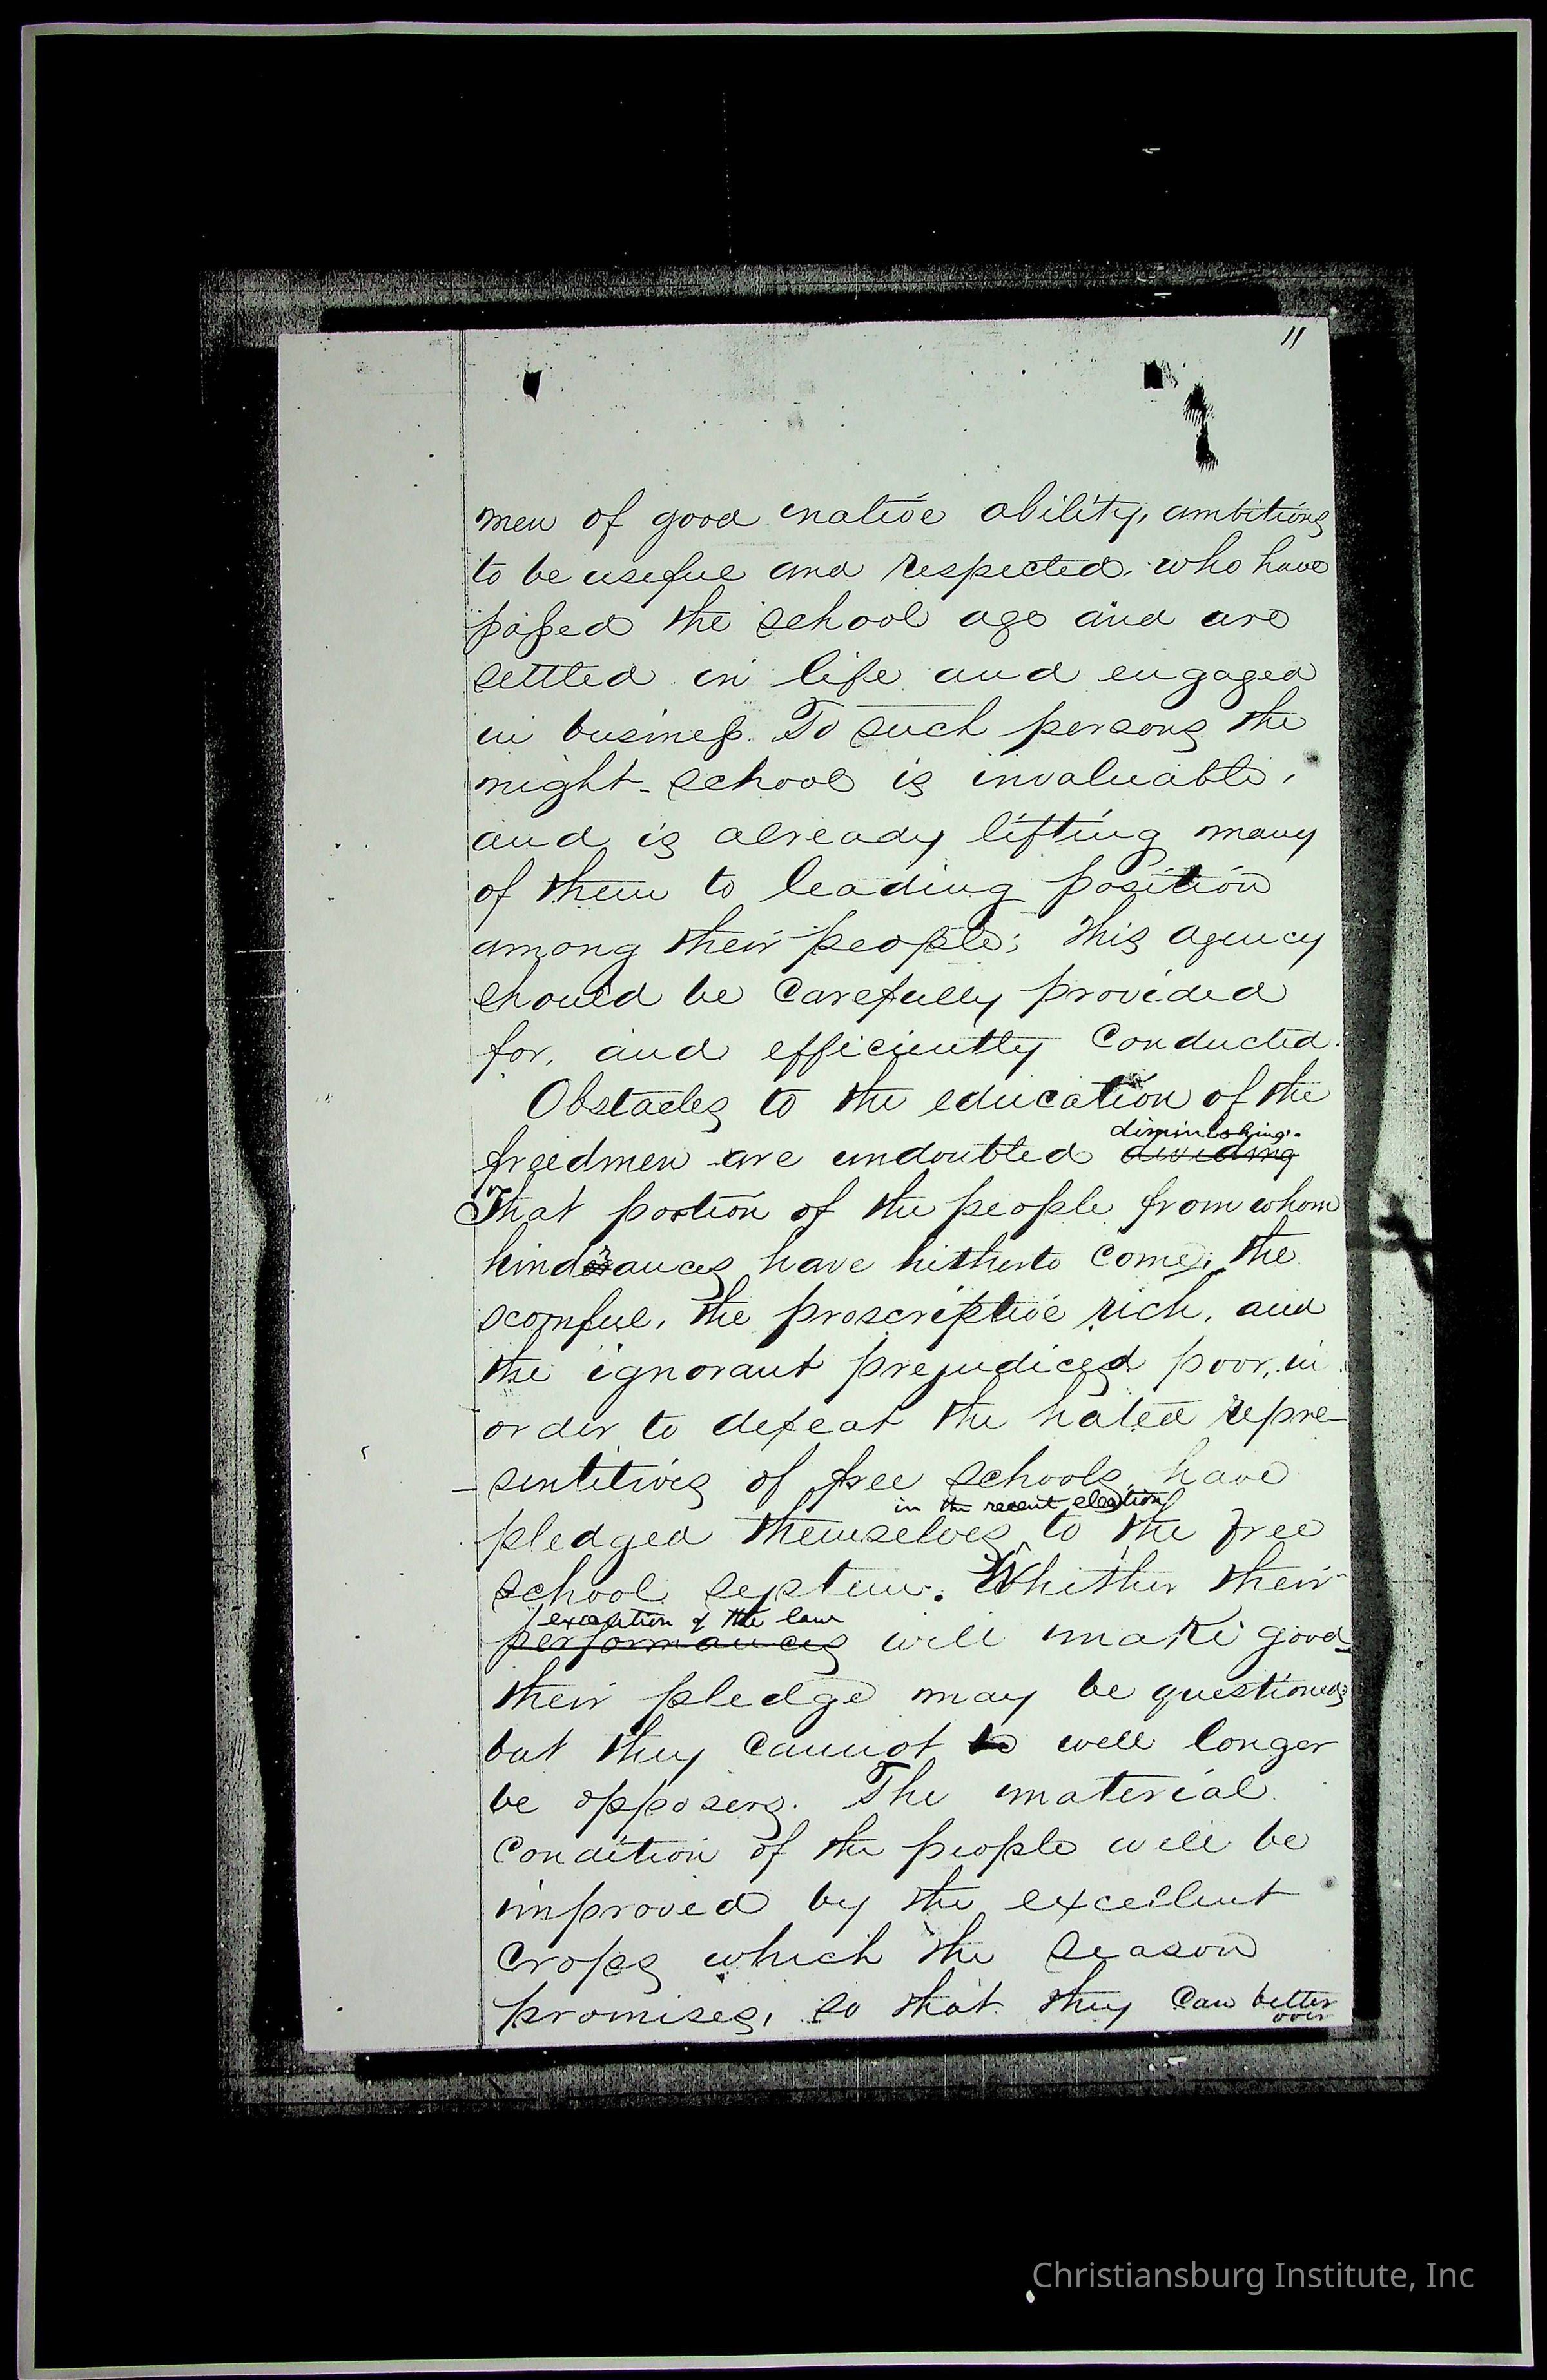 11
men of good native ability, ambitious
to be useful and respected. who have
passed the school age and are
settled in life and engaged
in business. To such persons the
night-school is invaluable,
and is already lifting many
of them to leading position
among their people; this agency
should be carefully provided
for, and efficiently conducted.
Obstacles to the education of the
diminishing.
freedmen are undoubted dividing
That portion of the people from whom
hindrances have hitherto come; the
scornful, the proscriptive rich, and
the ignorant prejudiced poor, in
order to defeat the hated repre-
sentitives of free schools, have
in the recent election
pledged themselves to the free
school system. Whether their
execution of the law
performances will make good
their pledge may be questioned
but they cannot well longer
be opposers. The material
condition of the people will be
improved by the excellent
crops which the season
promises, so that they can better
over
Christiansburg Institute, Inc